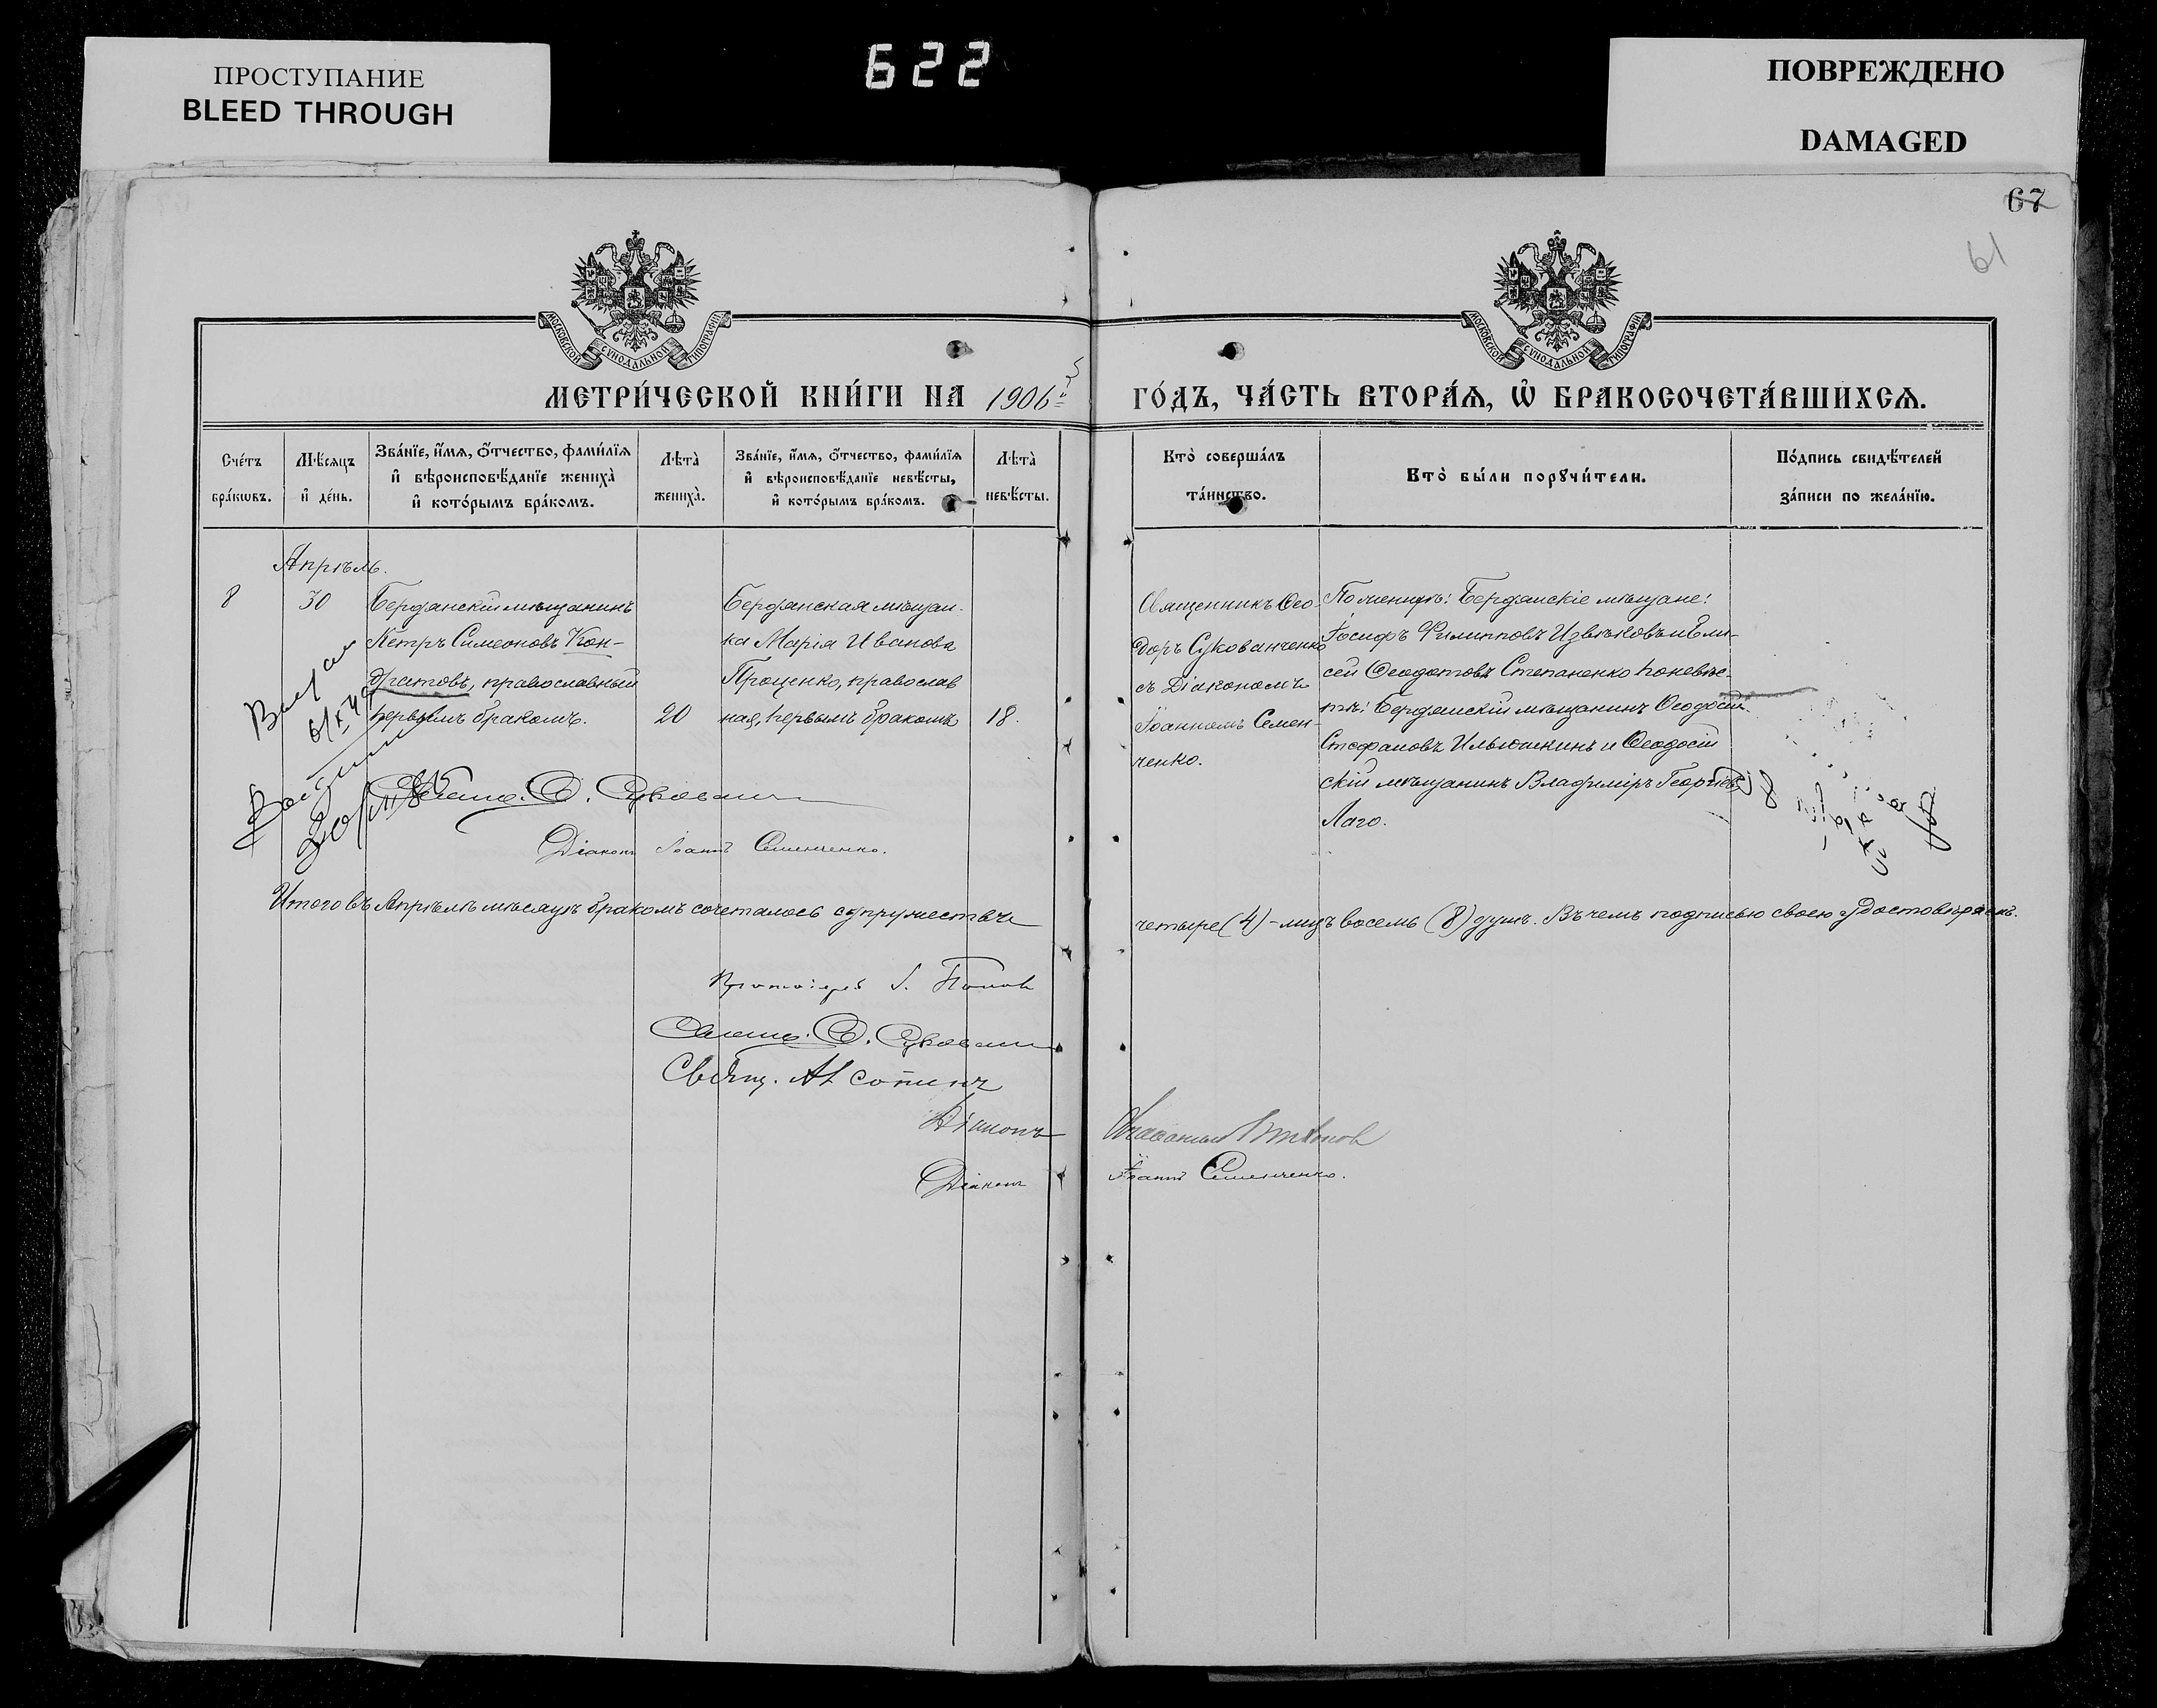 ПРОСТУПАНИЕ
BLEED THROUGH
622
ПОВРЕЖДЕНО
DAMAGED
67
61
МОСКОВСКОЙ СУНОДАЛЬНОЙ ТИПОГРАФІИ
МОСКОВСКОЙ СУНОДАЛЬНОЙ ТИПОГРАФІИ
МЕТРИ́ЧЕСКОЙ КНИ́ГИ НА 1906й ГО́ДЪ, ЧА́СТЬ ВТОРА́Я, Ѡ БРАКОСОЧЕТА́ВШИХСЯ.
Сче́тъ
бра́кѡвъ.
Мѣ́сяцъ
и҆ де́нь.
Зва́нїе, и҆́мя, ѻ҆́тчество, фами́лїя
и҆ вѣроисповѣ́данїе жениха̀
и҆ кото́рымъ бра́комъ.
Лѣ́та̀
жениха̀.
Зва́нїе, и҆́мя, ѻ҆́тчество, фами́лїя
и҆ вѣроисповѣ́данїе невѣ́сты,
и҆ кото́рымъ бра́комъ.
Лѣ́та̀
невѣ́сты.
Кто̀ соверша́лъ
та́инство.
Кто̀ бы́ли порꙋчи́тели.
По́дпись свидѣ́телей
за́писи по жела́нїю.
Апрѣль.
8
30
Бердянскій мѣщанинъ
Петръ Симеоновъ Кон-
дратовъ, православный
первымъ бракомъ.
20
Бердянская мѣщан-
ка Марія Иванова
Проценко, православ
ная, первымъ бракомъ
18.
Священникъ Ѳео-
доръ Сукованченко
съ Діакономъ
Іоанномъ Семен-
ченко.
По женихѣ: Бердянскіе мѣщане:
Іосифъ Филипповъ Извѣковъ и Ели-
сей Ѳеодотовъ Степаненко По невѣс-
тѣ: Бердянскій мѣщанинъ Ѳеодосій
Стефановъ Ильюшкинъ и Ѳеодосій
скій мѣщанинъ Владиміръ Георгіевъ
Лаго.
Діаконъ Іоаннъ Семенченко.
Итого въ Апрѣлѣ мѣсяцѣ бракомъ сочеталось супружествъ четыре (4) - лицъ восемь (8) душъ. Въ чемъ подписью своею удостовѣряемъ.
Протоіерей І. Поповъ
Діаконъ
Діаконъ Іоаннъ Семенченко.